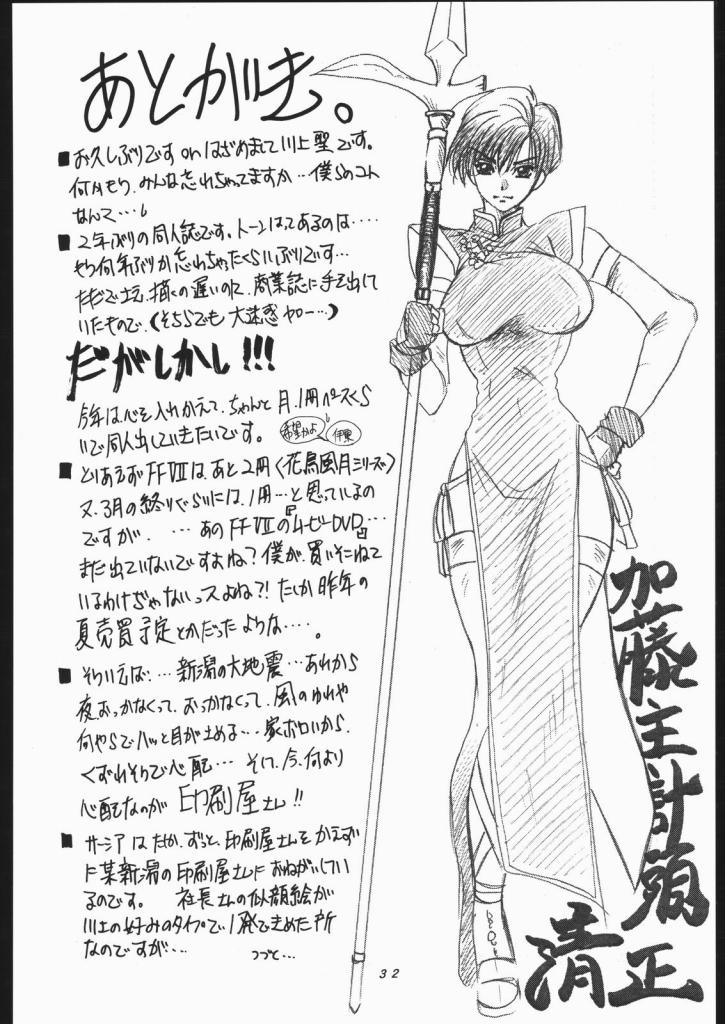 あとがき。
■お久しぶりです orはじめまして川上聖です。
何かもう、みんな忘れちゃってますか…僕らのコト
なんて…。
■2年ぶりの同人誌です。トーンはってあるのは‥‥
やつ何年ぶりか忘れちゃったくらいぶりです…
ただでさえ、描くの遅いのに、商業誌に手を出して
いたもので、(そちらでも大迷惑ヤロー…)
だがしかし!!!
今年は心を入れかえて、ちゃんと月、1冊ペースくら
いで同人出していきたいです。
希望かよ
伊東
■とりあえずFFⅦは、あと2冊〈花鳥風月シリーズ〉
又、3月の終りぐらいには、1冊…と思っているの
ですが、…あのFFⅦの『ムービーDVD』…
まだ出ていないですよね?僕が、買いそこねて
いるわけぢゃないっスよね?!たしか昨年の
夏売買予定とかだったような‥‥。
■そういえば‥…新潟の大地震…あれから
夜おっかなくって、おっかなくって、風のゆれや
何やらでハッと目が止める…家ボロいから、
くずれそうで心配…そして、今、何より
心配なのが 印刷屋さん!!
■サーシアはたしか、ずっと、印刷屋さんをかえず
に某新潟の印刷屋さんにおねがいしてい
るのです。 社長さんの似顔絵が
川上の好みのタイプで、1発できめた所
なのですが… つづく…
加藤主計頭
清正
32